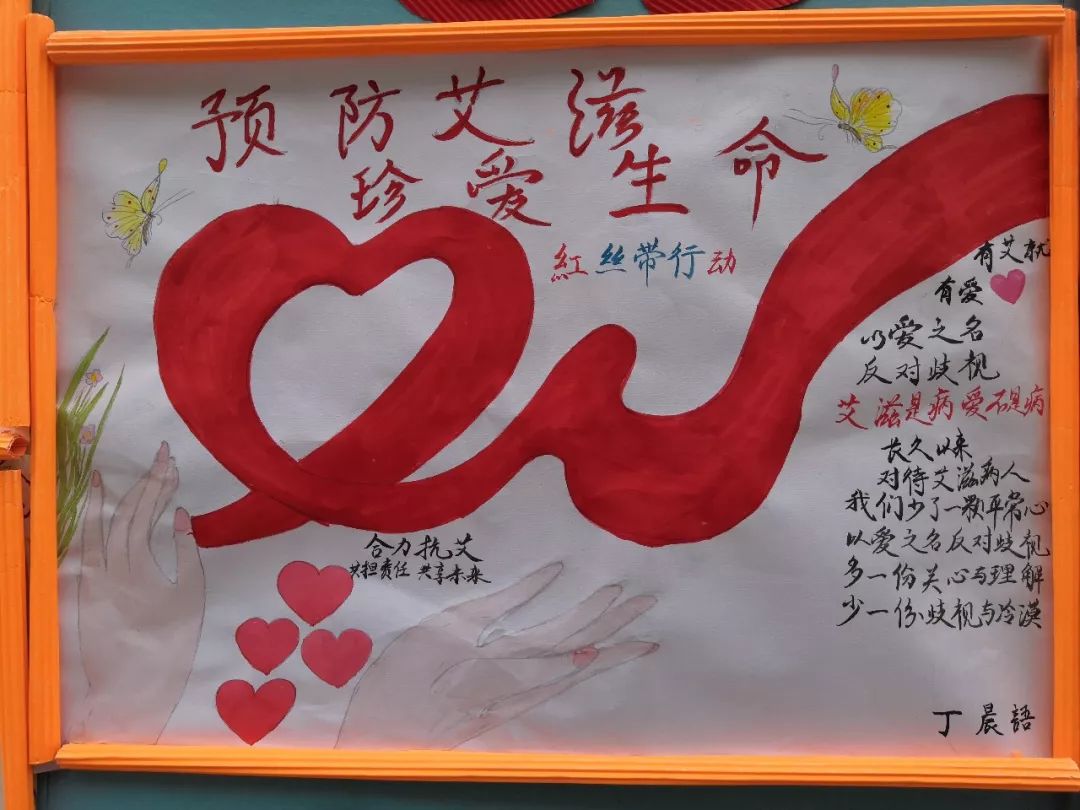 预防艾滋
珍爱生命
紅丝带行动
有艾就
有爱
以爱之名
反对歧视
艾滋是病爱不是病
长久以来
对待艾滋病人
我们少了一颗平常心
以爱之名反对歧视
多一份关心与理解
少一份歧视与冷漠
合力抗艾
共担责任 共享未来
丁晨語